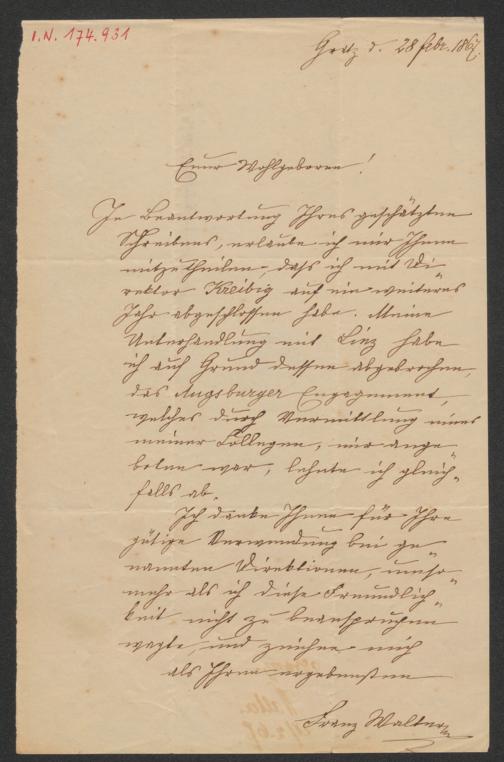 I.N. 174.931
Gratz d. 28 febr. 1867.
Euer Wohlgeboren!
In Beantwortung Ihres geschätzten
Schreibens, erlaube ich mir Ihnen
mitzutheilen, daß ich mit Di„
rektor Kreibig auf ein weiteres
Jahr abgeschlossen habe. Meine
Unterhandlung mit Linz habe
ich auf Grund dessen abgebrochen,
das Augsburger Engagement,
welches durch Vermittlung eines
meiner Collegen, mir ange„
boten war, lehnte ich gleich„
falls ab.
Ich danke Ihnen für Ihre
gütige Verwendung bei ge„
nannten Direktionen, umso„
mehr als ich diese Freundlich„
keit nicht zu beanspruchen
wagte, und zeichne mich
als Ihren ergebensten
Franz Walter